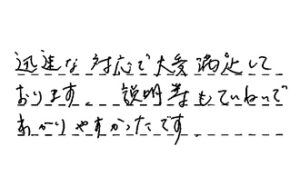 迅速な対応で大変満足して
おります。説明等もていねいで
わかりやすかったです。